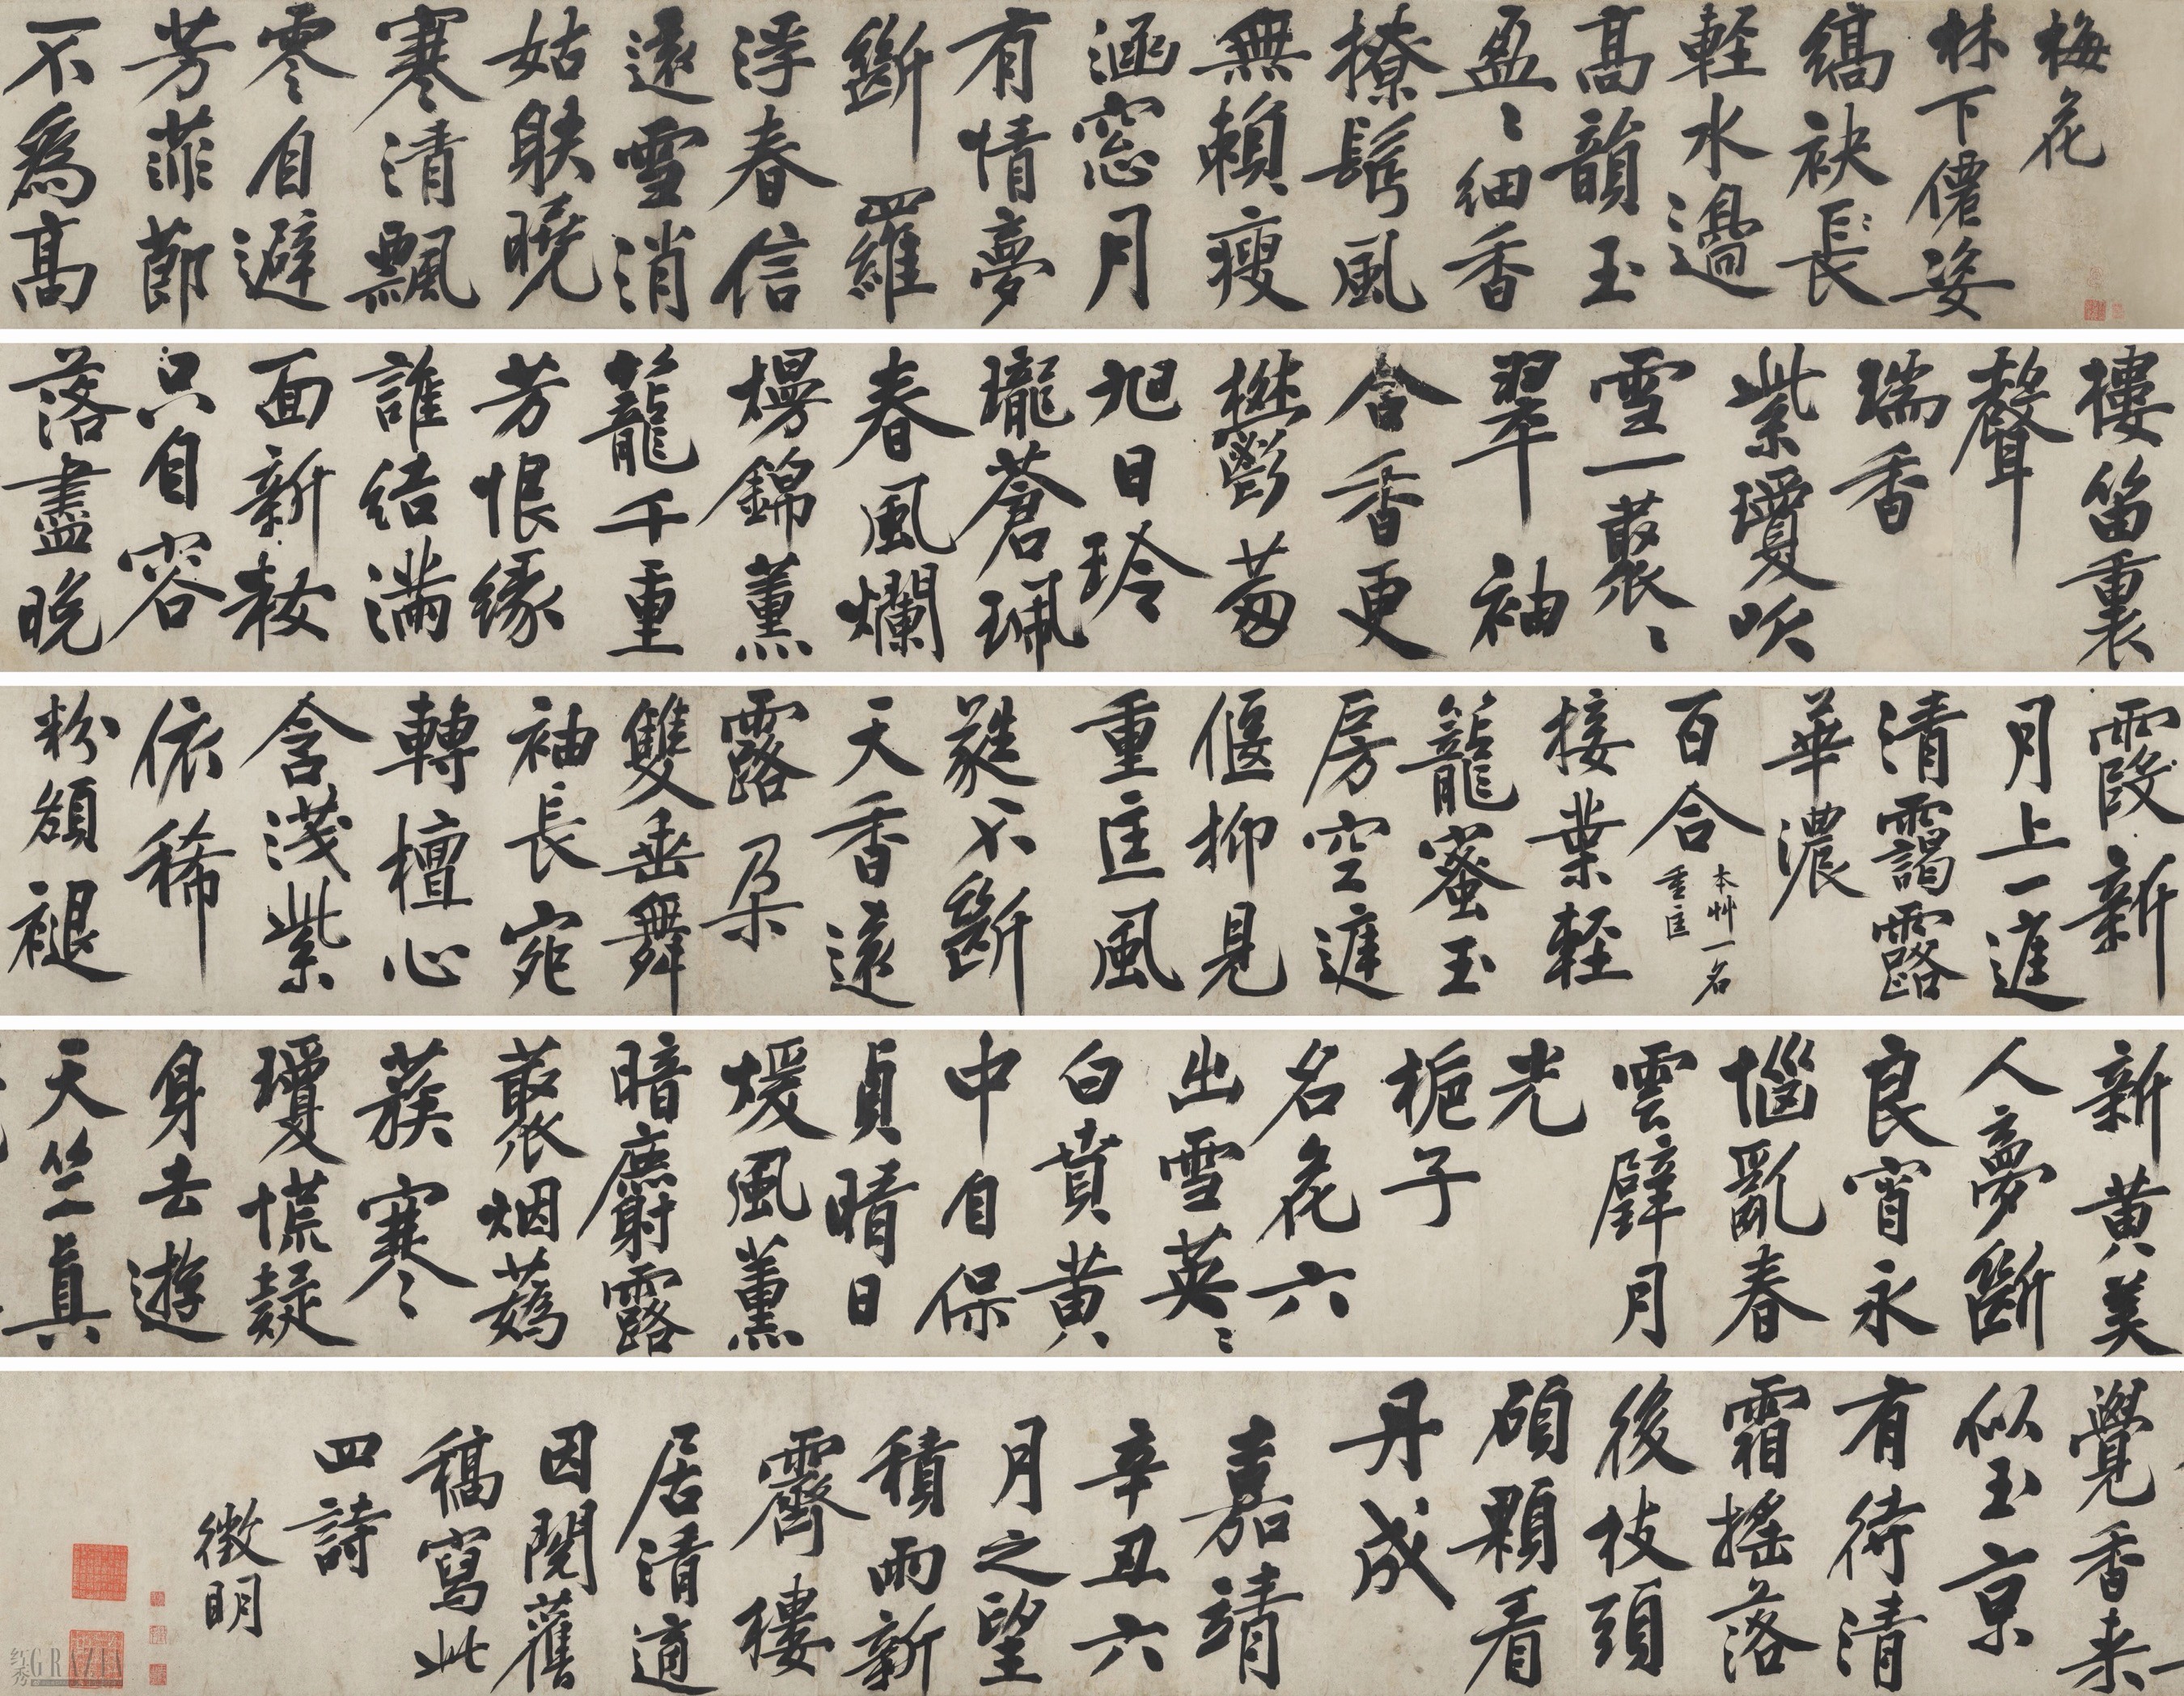 梅花
林下僊姿
縞袂長
軽水邊
高韻玉
盈〻細香
撩鬂風
無賴瘦
涵窓月
有情夢
斷羅
浮春信
遠雪消
姑射曉
寒清飄
零自避
芳菲節
不為高
樓笛裏
聲
瑞香
紫瓊吹
雪一藂〻
翠袖
含香更
鬱葱
旭日玲
瓏蒼珮
春風爛
熳錦薰
籠千重
芳恨緣
誰結滿
面新妝
只自容
落盡晚
霞新
月上一庭
清靄露
華濃
百合本艸一名重匡
接葉軽
籠蜜玉
房空庭
偃抑見
重匡風
蕤不斷
天香遠
露朵
雙垂舞
袖長宛
轉檀心
含淺紫
依稀
粉額褪
新黄美
人夢斷
良宵永
惱亂春
雲璧月
光
梔子
名花六
出雪英〻
白賁黄
中自保
貞晴日
煖風薰
暗麝露
藂烟蕎
蔟寒〻
瓊慌疑
身去遊
天竺真
覺香来
似玉京
有待清
霜搖落
後枝頭
碩顆看
丹成
嘉靖
辛丑六
月之望
積雨新
霽樓
居清適
因閱舊
稿寫此
四詩
徵明
红秀GRAZIA